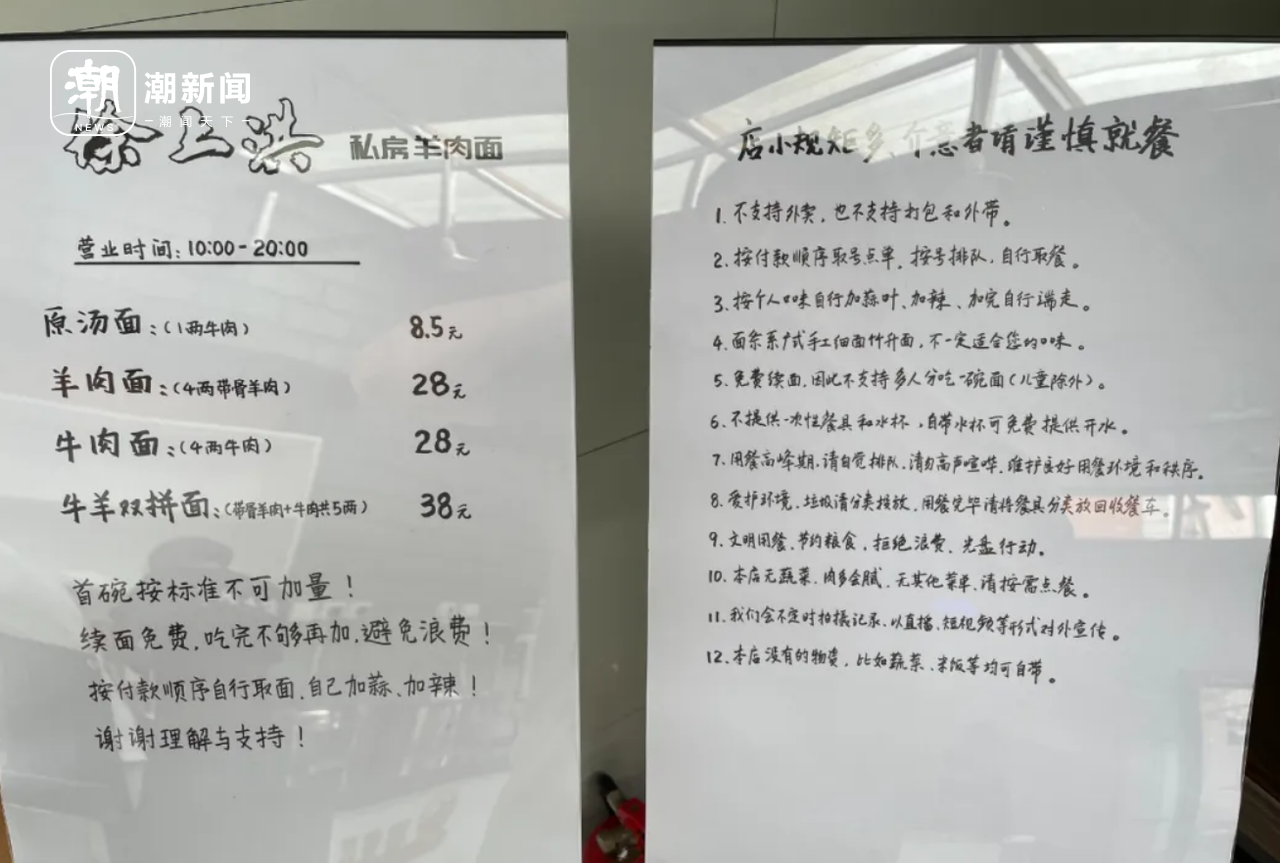 潮
NEWS
潮新闻
潮闻天下
徐上洪 私房羊肉面
营业时间:10:00-20:00
原汤面:(1两牛肉) 8.5元
羊肉面:(4两带骨羊肉) 28元
牛肉面:(4两牛肉) 28元
牛羊双拼面:(带骨羊肉+牛肉共5两) 38元
首碗按标准不可加量!
续面免费,吃完不够再加,避免浪费!
按付款顺序自行取面,自己加蒜、加辣!
谢谢理解与支持!
店小规矩多,介意者请谨慎就餐
1.不支持外卖,也不支持打包和外带。
2.按付款顺序取号点单,按号排队,自行取餐。
3.按个人口味自行加蒜叶、加辣、加完自行端走。
4.面条系广式手工细面竹升面,不一定适合您的口味。
5.免费续面,因此不支持多人分吃一碗面(儿童除外)。
6.不提供一次性餐具和水杯,自带水杯可免费提供开水。
7.用餐高峰期,请自觉排队,请勿高声喧哗,维护良好用餐环境和秩序。
8.爱护环境,垃圾请分类投放,用餐完毕请将餐具分类放回收餐车。
9.文明用餐,节约粮食,拒绝浪费,光盘行动。
10.本店无蔬菜,肉多会腻,无其他菜单,请按需点餐。
11.我们会不定时拍摄记录,以直播、短视频等形式对外宣传。
12.本店没有的物资,比如蔬菜、米饭等均可自带。